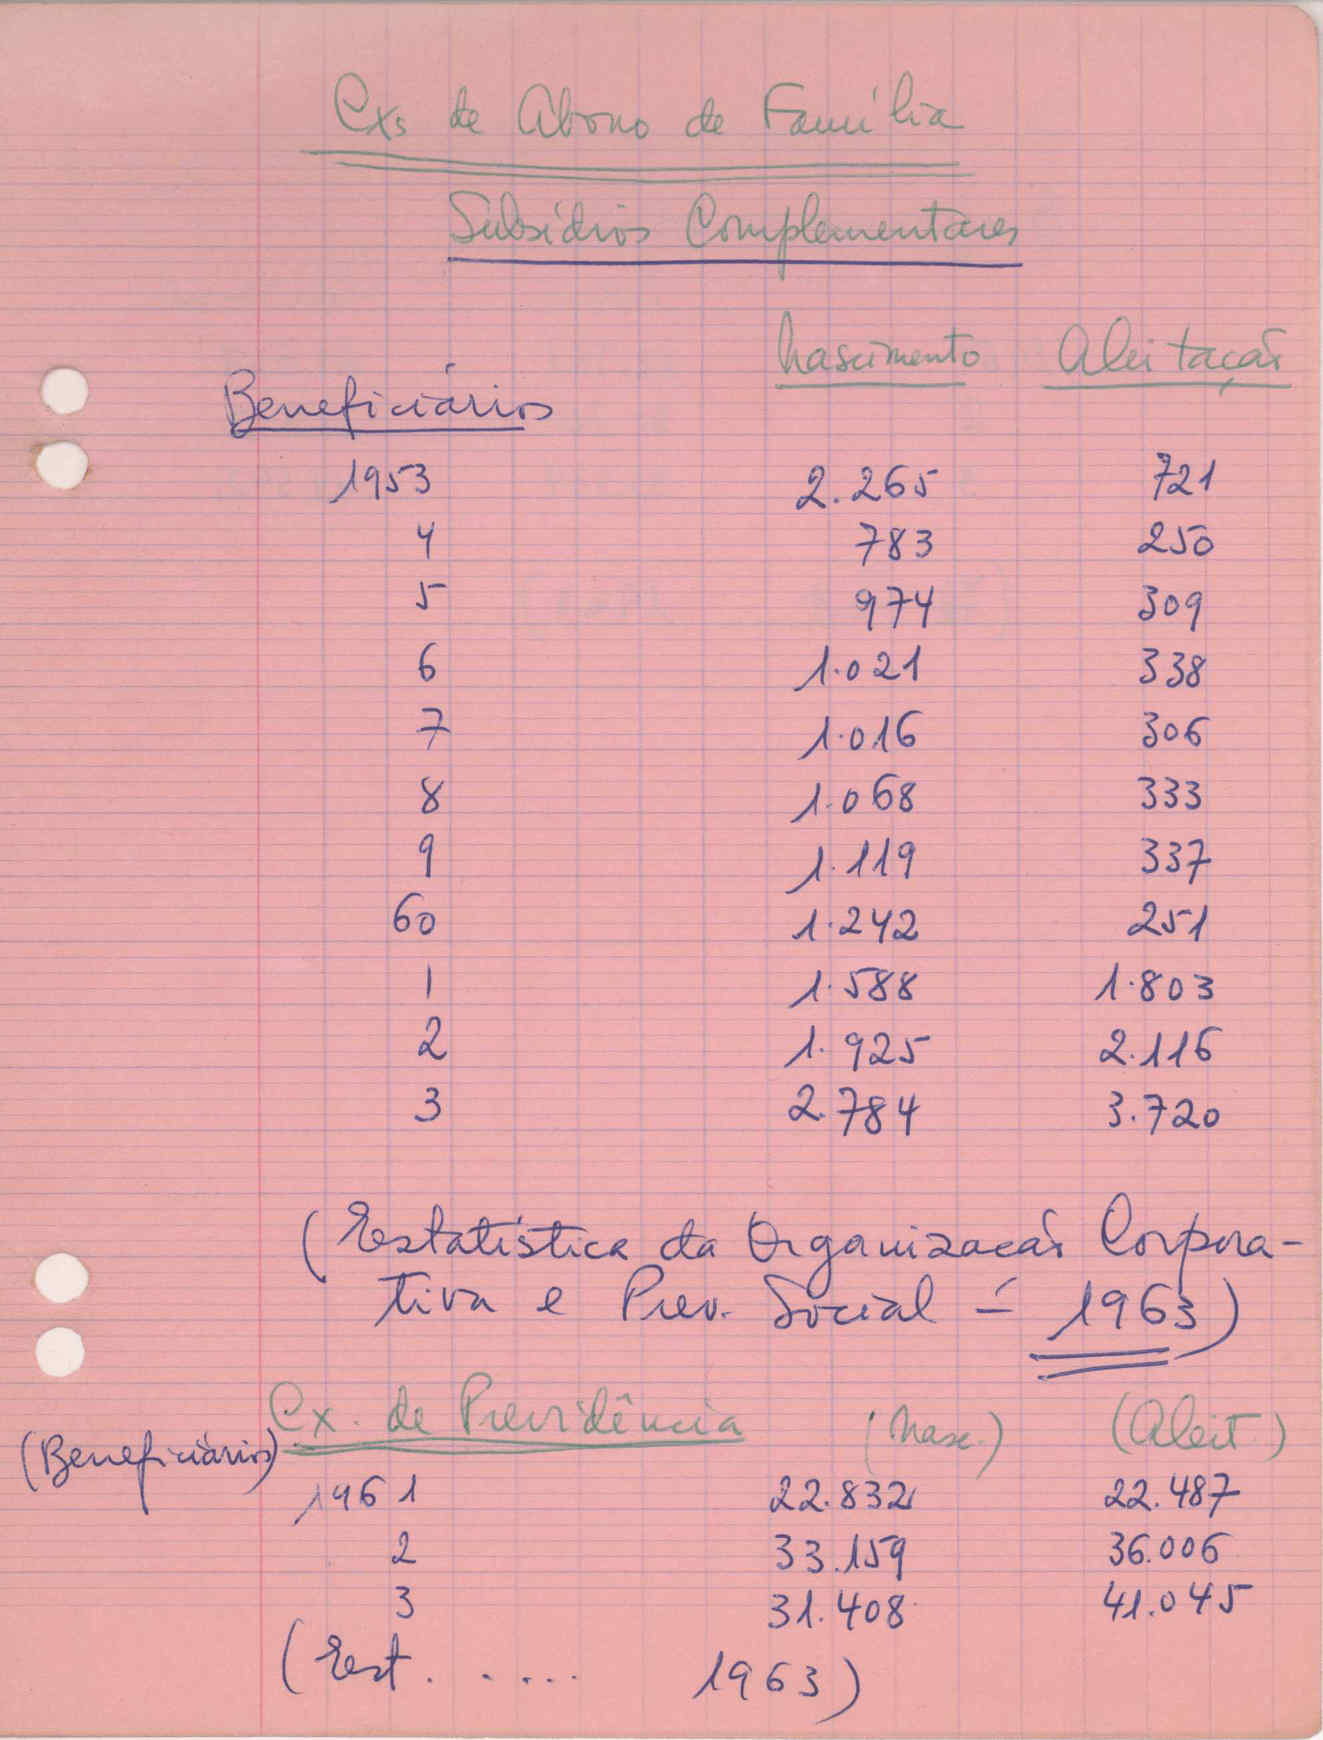 Cxs de Abono de Família
Subsídios Complementares
Nascimento Aleitação
Beneficiários
1953 2.265 721
4 783 250
5 974 309
6 1.021 338
7 1.016 306
8 1.068 333
9 1.119 337
60 1.242 251
1 1.588 1.803
2 1.925 2.116
3 2.784 3.720
(Estatística da Organização Corpora-
tiva e Prev. Social - 1963)
Cx. de Previdência (Nasc.) (Aleit.)
(Beneficiários)
1961 22.832 22.487
2 33.159 36.006
3 31.408 41.045
(Est. ..... 1963)